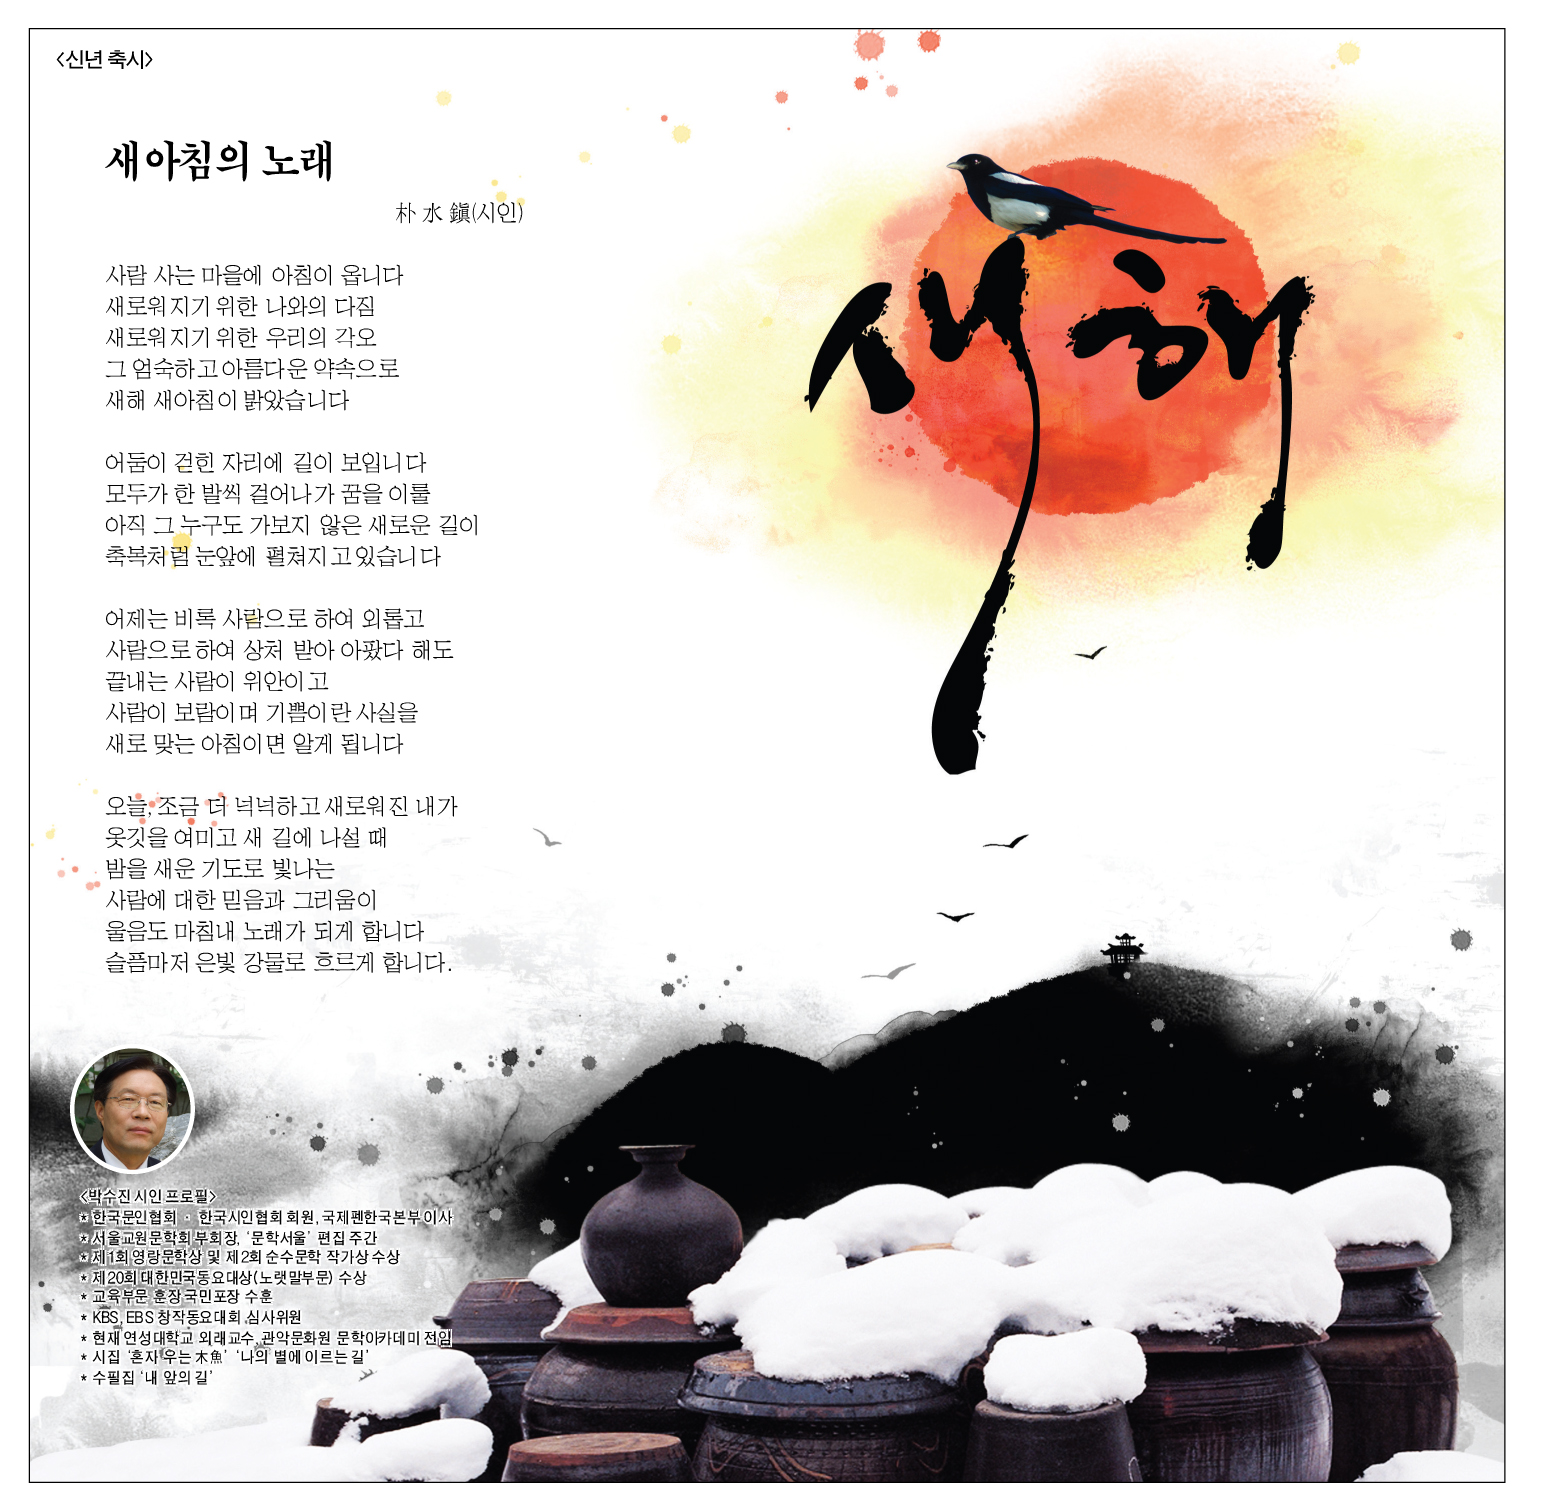 <신년 축시>
새아침의 노래
朴 水 鎭(시인)
사람 사는 마을에 아침이 옵니다
새로워지기 위한 나와의 다짐
새로워지기 위한 우리의 각오
그 엄숙하고 아름다운 약속으로
새해 새아침이 밝았습니다
어둠이 걷힌 자리에 길이 보입니다
모두가 한 발씩 걸어나가 꿈을 이룰
아직 그 누구도 가보지 않은 새로운 길이
축복처럼 눈앞에 펼쳐지고 있습니다
어제는 비록 사람으로 하여 외롭고
사람으로 하여 상처 받아 아팠다 해도
끝내는 사람이 위안이고
사람이 보람이며 기쁨이란 사실을
새로 맞는 아침이면 알게 됩니다
오늘, 조금 더 넉넉하고 새로워진 내가
옷깃을 여미고 새 길에 나설 때
밤을 새운 기도로 빛나는
사람에 대한 믿음과 그리움이
울음도 마침내 노래가 되게 합니다
슬픔마저 은빛 강물로 흐르게 합니다.
새해
<박수진 시인 프로필>
* 한국문인협회 · 한국시인협회 회원, 국제펜한국본부 이사
* 서울교원문학회 부회장, '문학서울' 편집 주간
* 제1회 영랑문학상 및 제2회 순수문학 작가상 수상
* 제20회 대한민국동요대상(노랫말부문) 수상
* 교육부문 훈장 국민포장 수훈
* KBS, EBS 창작동요대회 심사위원
* 현재 연성대학교 외래교수, 관악문화원 문학아카데미 전임
* 시집 '혼자 우는 木魚' '나의 별에 이르는 길'
* 수필집 '내 앞의 길'